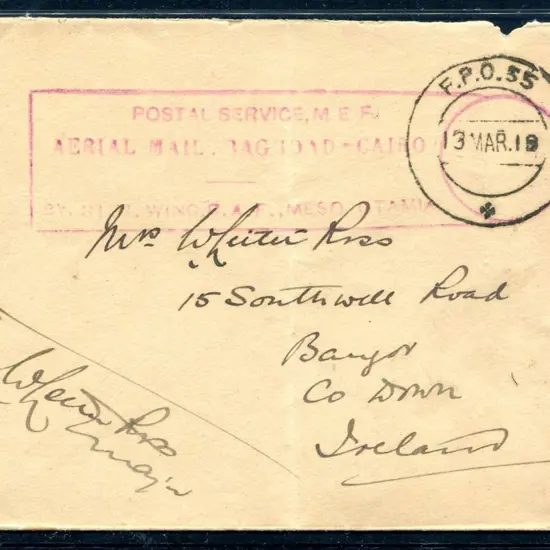 POSTAL SERVICE, M.E.F.
AERIAL MAIL. BAGHDAD-CAIRO
BY. WING. R.A.F., MESOPOTAMIA
F.P.O. 55
13 MAR. 19
Mrs Whiter Ross
15 Southwell Road
Bangor
Co Down
Ireland
Ross
Major